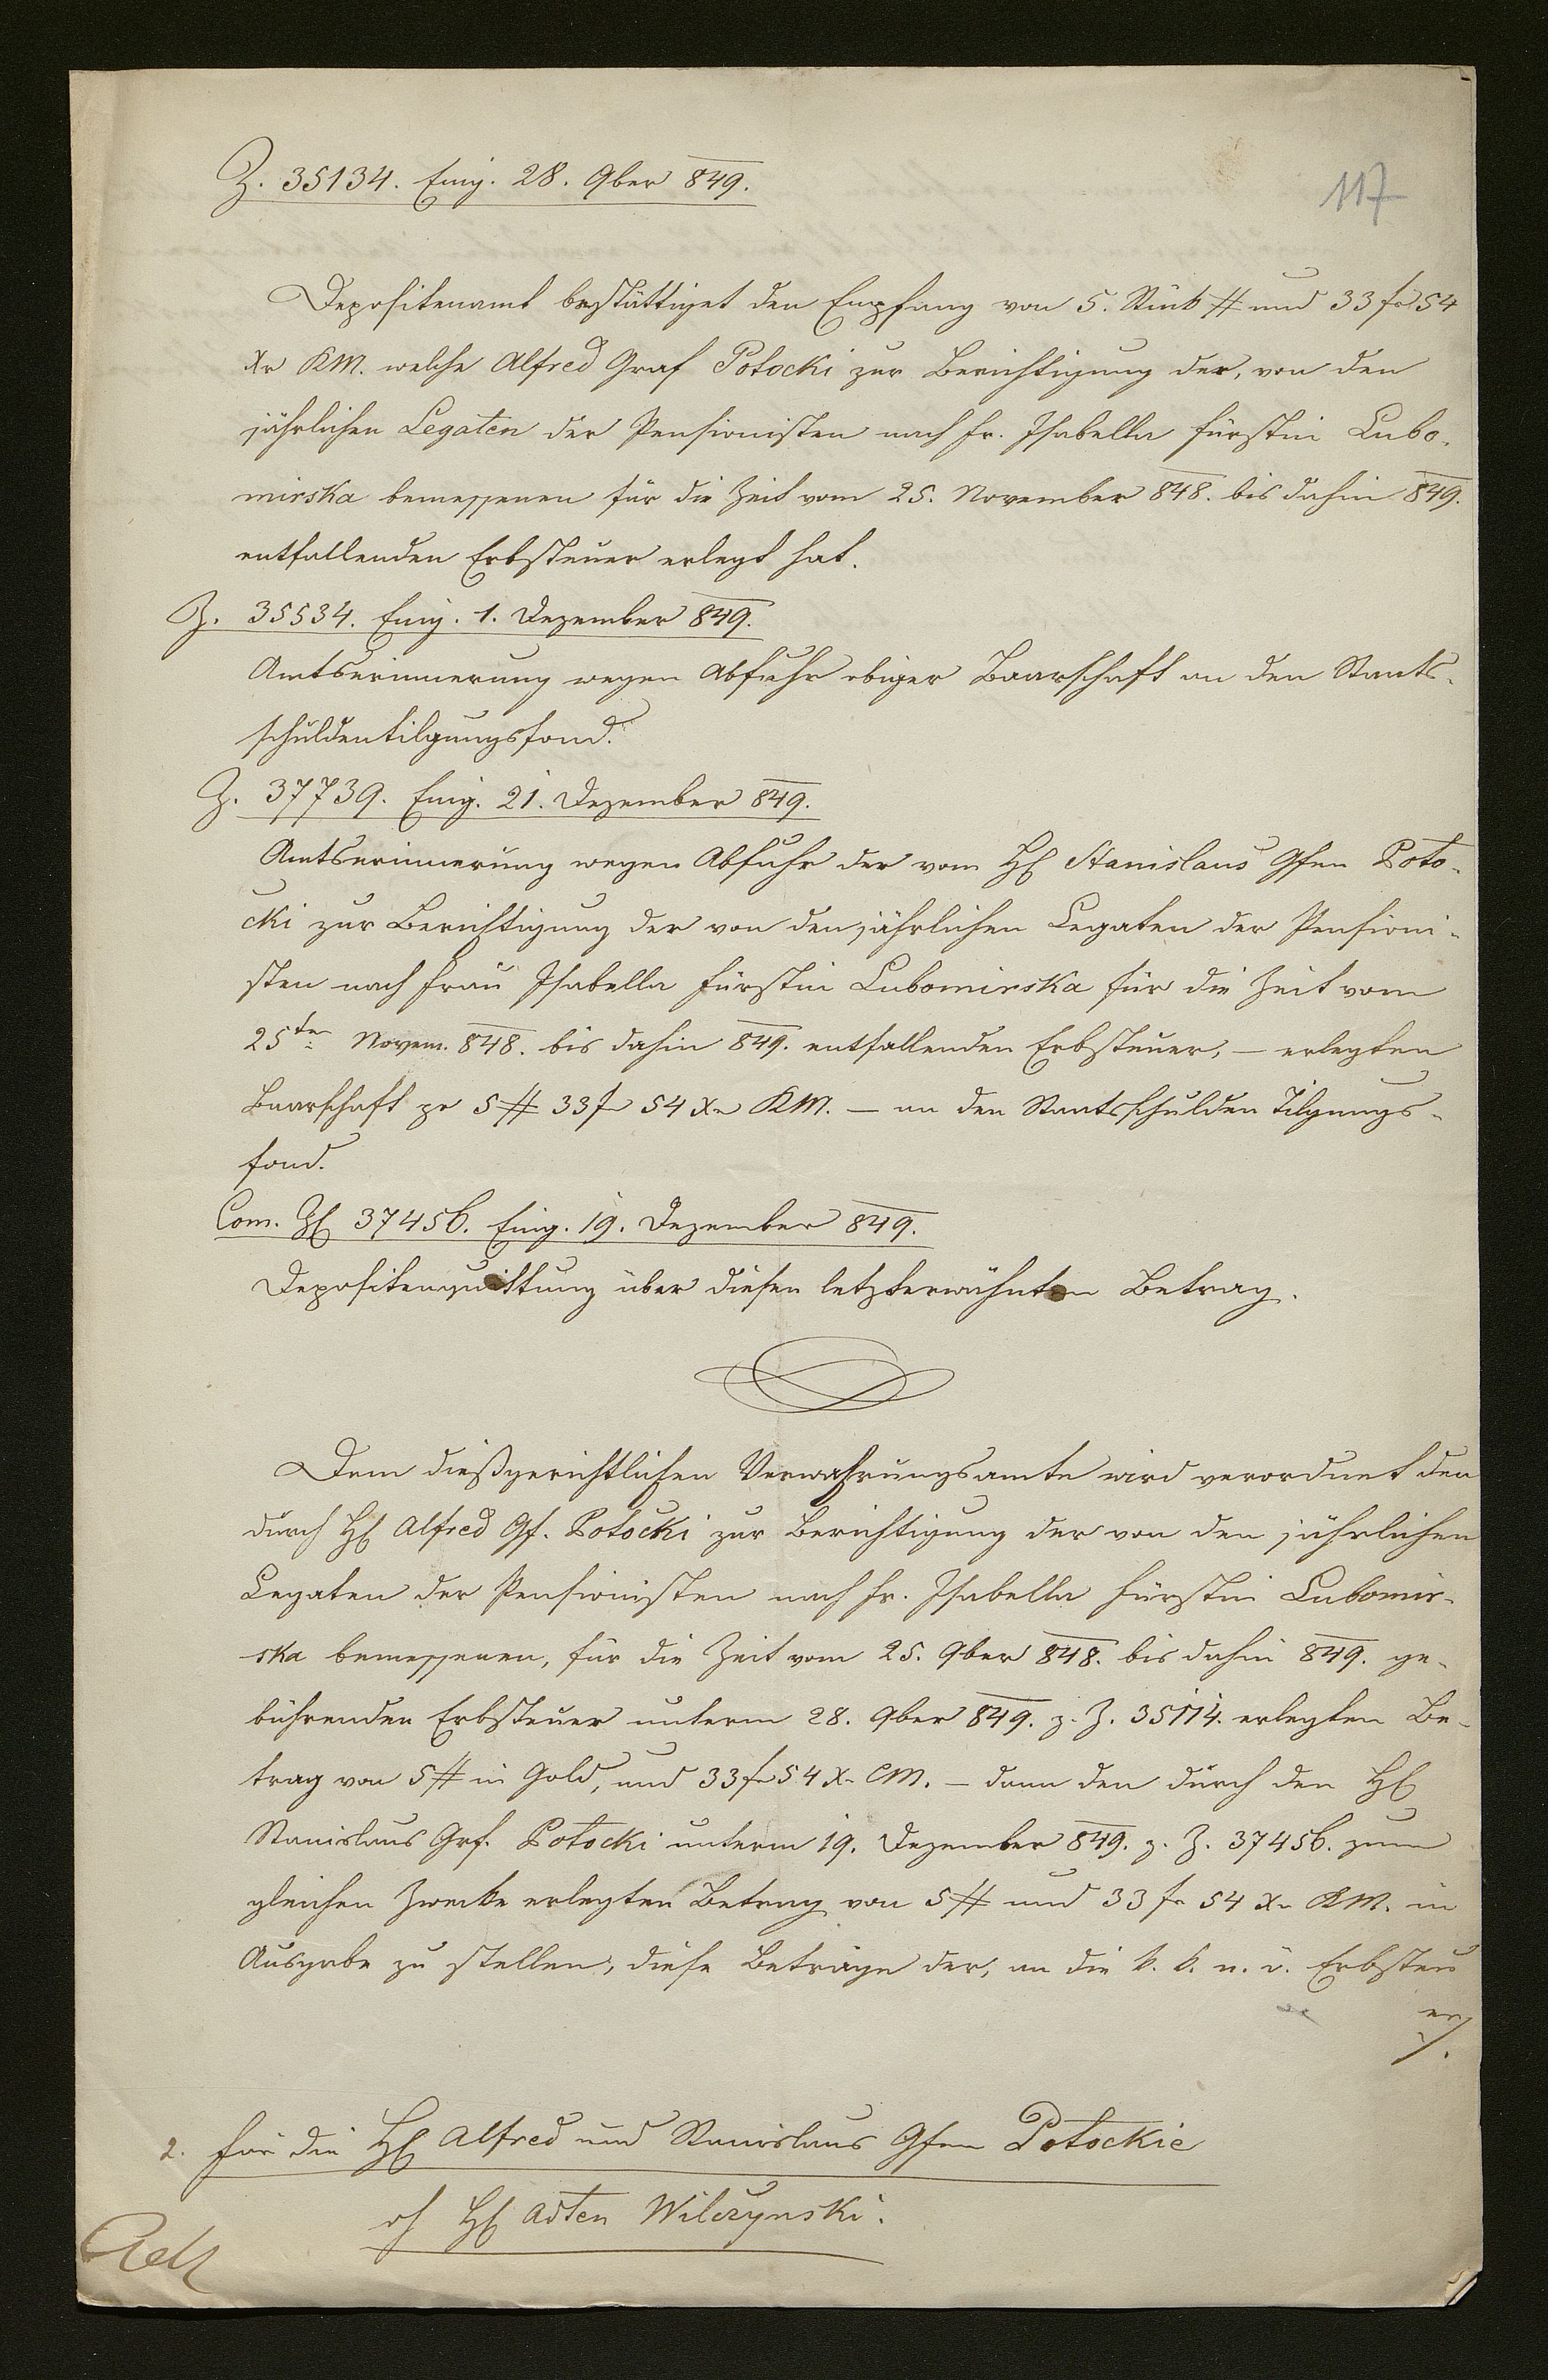 Z. 35134. Eing. 28. 9ber 849.
117
Depositenamt bestättiget den Empfang von 5. Stück # und 33 f 54
Xr KM. welche Alfred Graf Potocki zur Berichtigung der, von den
jährlichen Legaten der Pensionisten nach Fr. Isabella Fürstin Lubo-
mirska bemessenen für die Zeit vom 25. November 848. bis dahin 849.
entfallenden Erbsteuer erlegt hat.
Z. 35534. Eing. 1. Dezember 849.
Amtserinnerung wegen Abfuhr obiger Baarschaft an den Staats-
schuldentilgungsfond.
Z. 37739. Eing. 21. Dezember 849.
Amtserinnerung wegen Abfuhr der vom H Stanislaus Gfen Poto-
cki zur Berichtigung der von den jährlichen Legaten der Pensioni-
sten nach Frau Isabella Fürstin Lubomirska für die Zeit vom
25ten Novem. 848. bis dahin 849. entfallenden Erbsteuer, – erlegten
Baarschaft pr 5 # 33 f 54 Xr KM. – an den Staatsschulden Tilgungs-
fond.
Com. Zl 37456. Eing. 19. Dezember 849.
Depositenquittung über diesen letzterwähnten Betrag.
Dem dießgerichtlichen Verwahrungsamte wird verordnet den
durch H Alfred Gf. Potocki zur Berichtigung der von den jährlichen
Legaten der Pensionisten nach Fr. Isabella Fürstin Lubomir-
ska bemessenen, für die Zeit vom 25. 9ber 848. bis dahin 849. ge-
bührenden Erbsteuer unterm 28. 9ber 849. z. Z. 35114. erlegten Be-
trag von 5 # in Gold, und 33 f 54 Xr CM. – dann den durch den H
Stanislaus Grf. Potocki unterm 19. Dezember 849. z. Z. 37456. zum
gleichen Zwecke erlegten Betrag von 5 # und 33 f 54 Xr KM. in
Ausgabe zu stellen, diese Beträge der, an die k. k. n. ö. Erbsteu
er/.
2. Für die H Alfred und Stanislaus Gfen Potockie
H Adten Wilczynski.